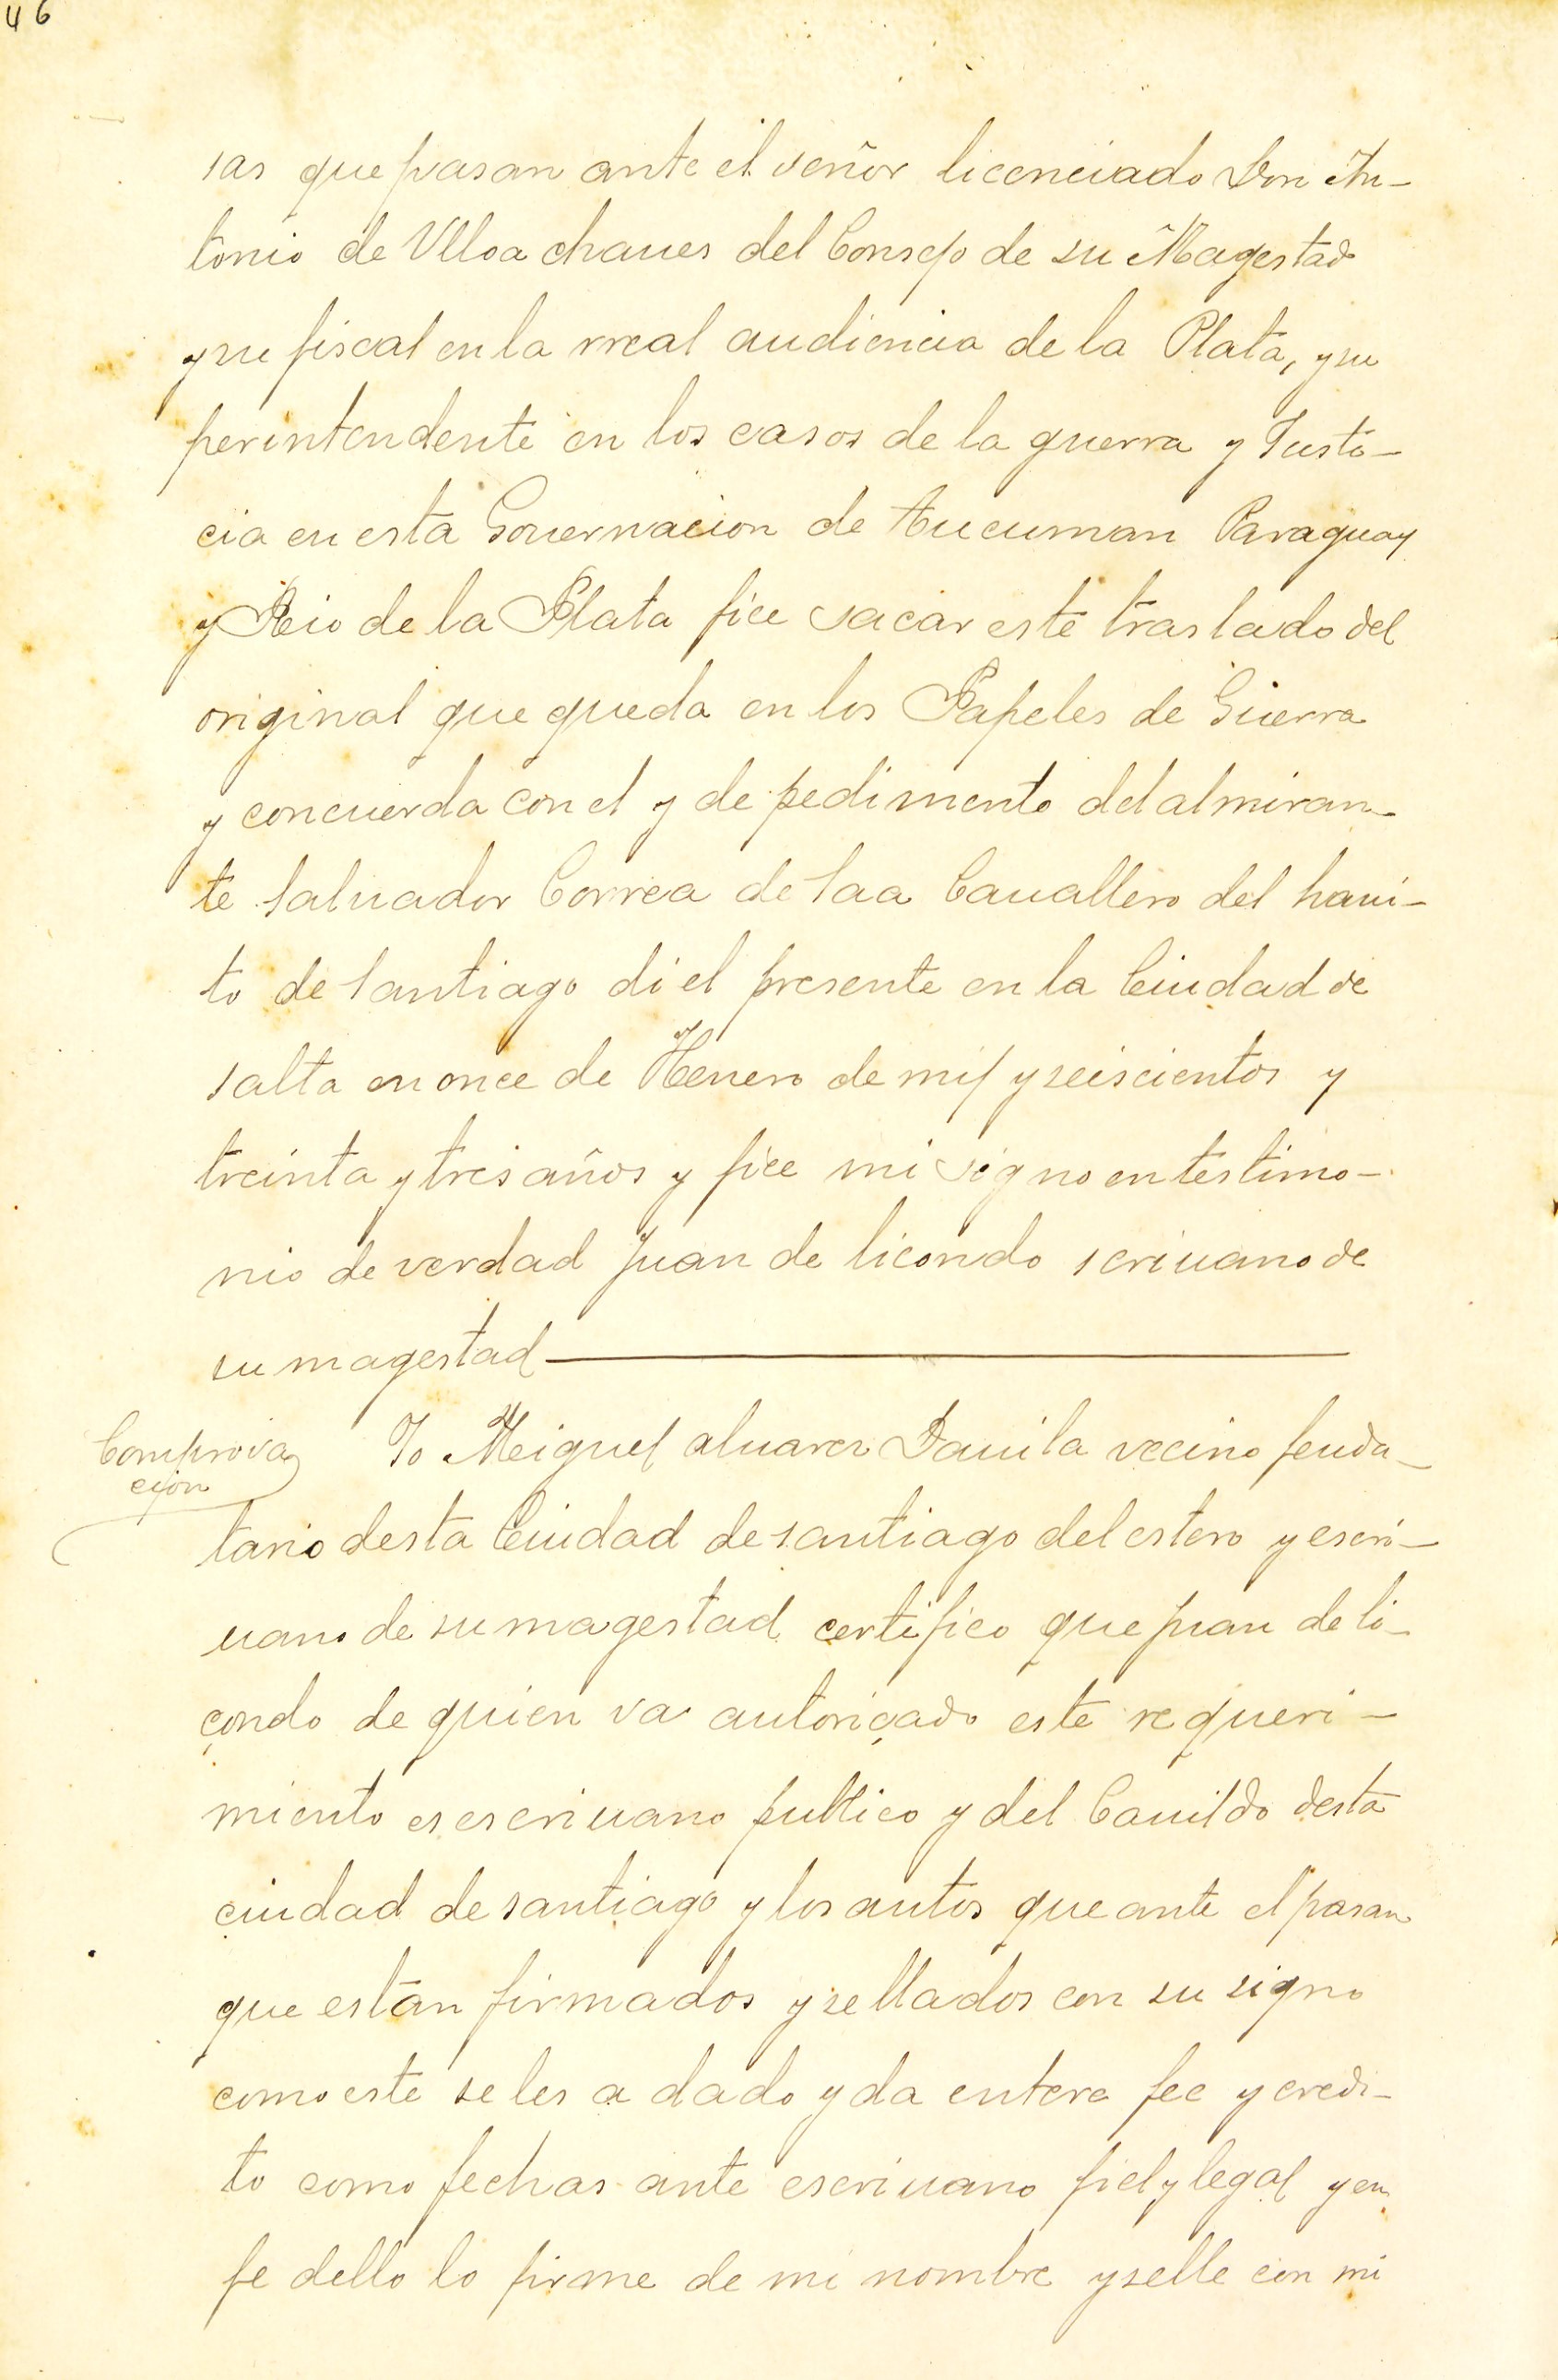 46
sas que pasan ante el señor licenciado Don An-
tonio de Ulloa chaues del Consejo de su Magestad
y su fiscal en la rreal audiencia de la Plata, y su
perintendente en los casos de la guerra y Justi-
cia en esta Gouernacion de tucuman Paraguay
y Rio de la Plata fice sacar este traslado del
original que queda en los Papeles de Guerra
y concuerda con el y de pedimento del almiran-
te saluador Correa de saa Cauallero del haui-
to de santiago di el presente en la Ciudad de
salta en once de Henero de mil y seiscientos y
treinta y tres años y fice mi signo en testimo-
nio de verdad Juan de licondo scriuano de
su magestad
Comprova
cion
Yo Miguel aluarez Dauila vecino feuda-
tario desta Ciudad de santiago del estero y escri-
uano de su magestad certifico que juan de li-
çondo de quien va autoriçado este requeri-
miento es escriuano publico y del Cauildo desta
ciudad de santiago y los autos que ante el pasan
que estan firmados y sellados con su signo
como este se les a dado y da entera fee y credi-
to como fechas ante escriuano fiel y legal y en
fe dello lo firme de mi nombre y selle con mi